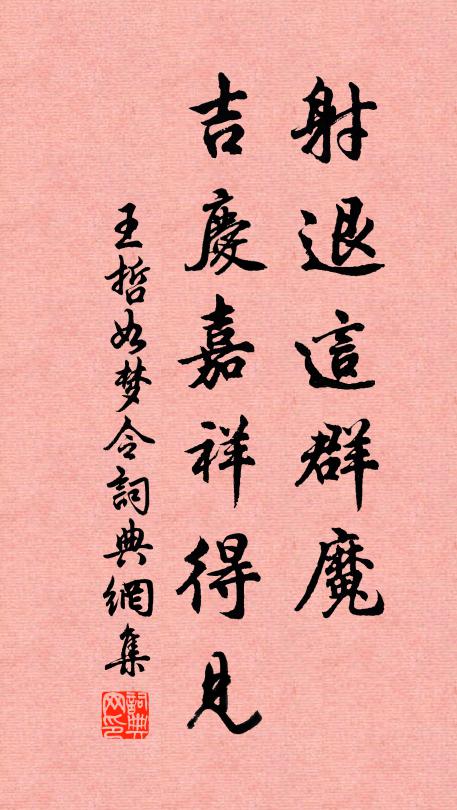 射退這群魔
吉慶嘉祥得見
王哲如梦令詞典網集
詞典网印